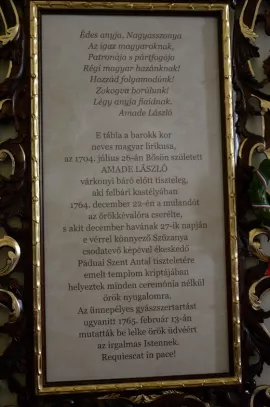 Édes anyja, Nagyasszonya
Az igaz magyaroknak,
Patronája s pártfogója
Régi magyar hazánknak!
Hozzád folyamodunk!
Zokogva borúlunk!
Légy anyja fiaidnak.
Amade László
E tábla a barokk kor
neves magyar lírikusa,
az 1704. július 26-án Bősön született
AMADE LÁSZLÓ
várkonyi báró előtt tiszteleg,
aki felbári kastélyában
1764. december 22-én a mulandót
az örökkévalóra cserélte,
s akit december havának 27-ik napján
e vérrel könnyező Szűzanya
csodatevő képével ékeskedő
Páduai Szent Antal tiszteletére
emelt templom kriptájában
helyeztek minden ceremónia nélkül
örök nyugalomra.
Az ünnepélyes gyászszertartást
ugyanitt 1765. február 13-án
mutatták be lelke örök üdvéért
az irgalmas Istennek.
Requiescat in pace!